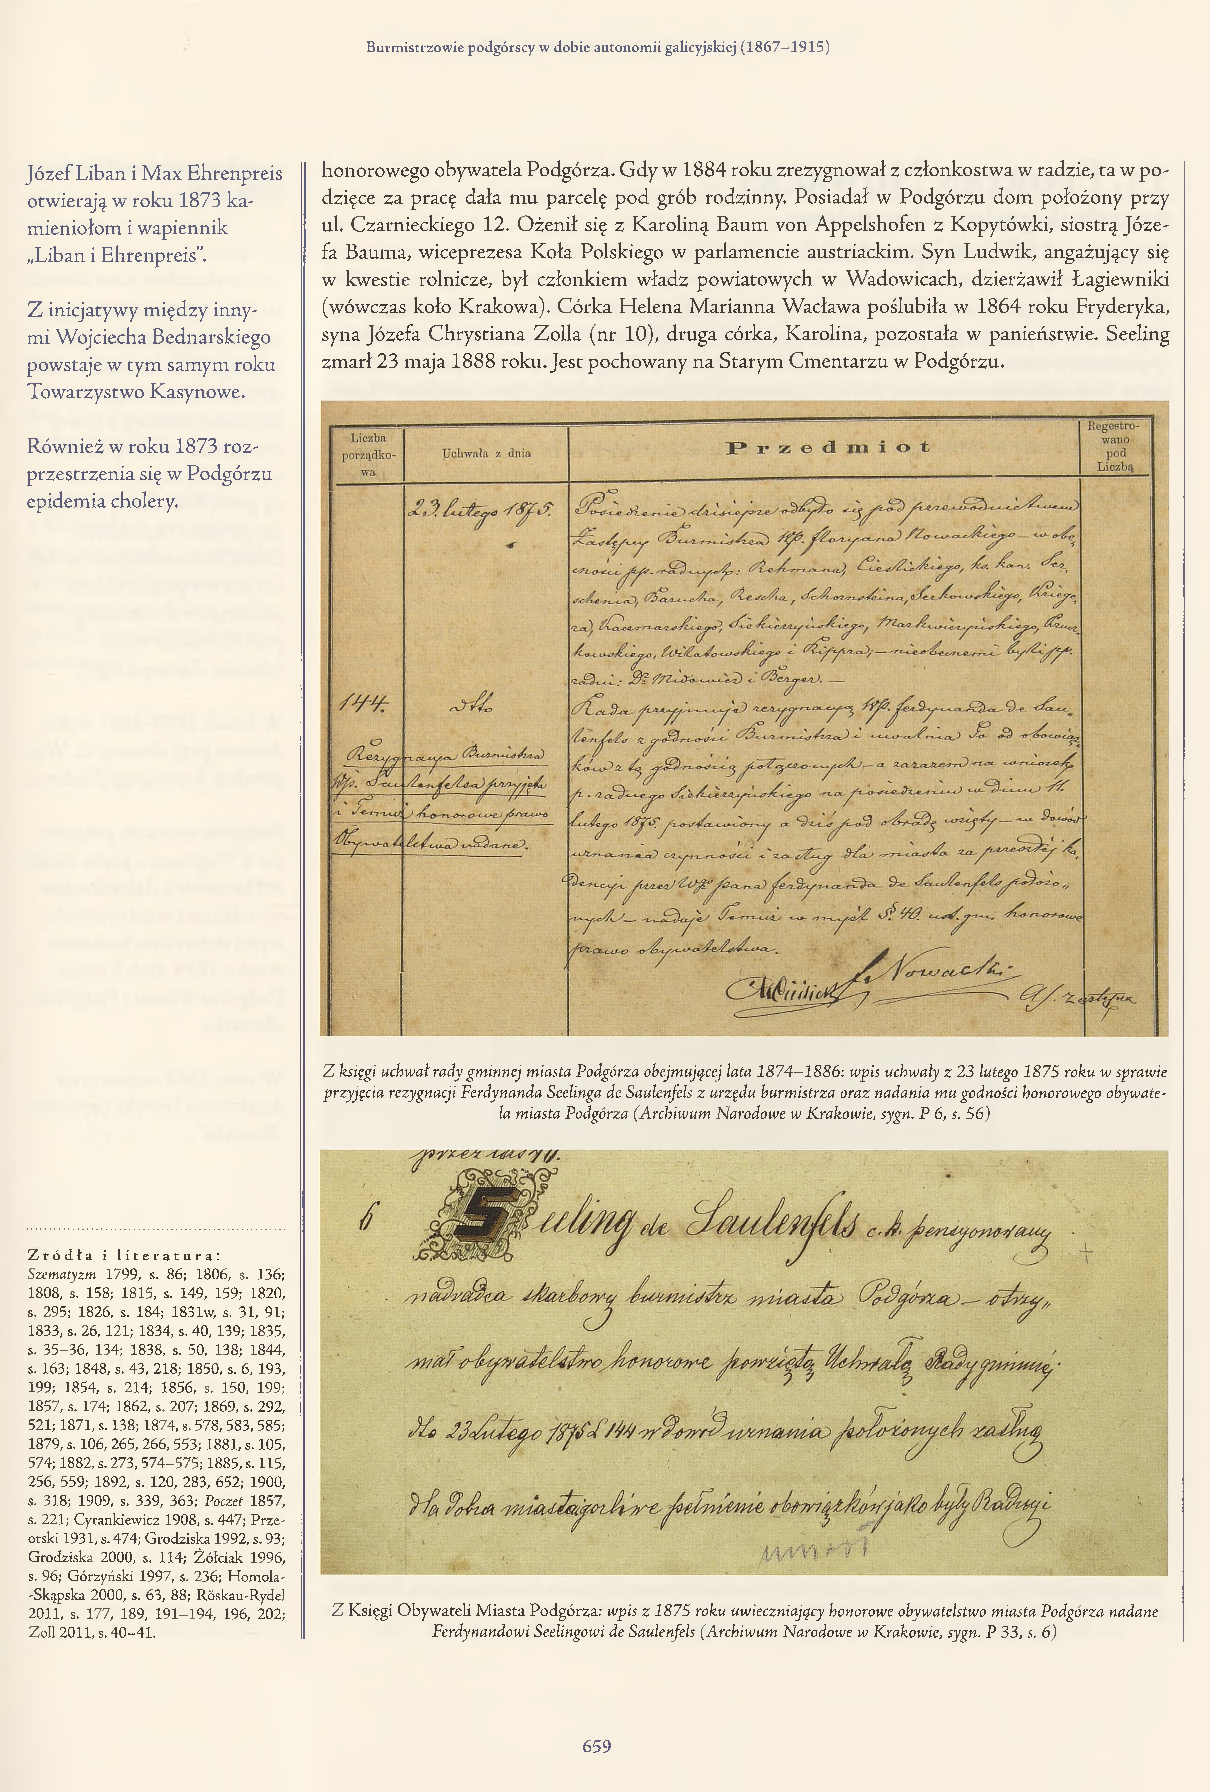 Burmistrzowie podgórscy w dobie autonomii galicyjskiej (1867–1915)
Józef Liban i Max Ehrenpreis
otwierają w roku 1873 ka-
mieniołom i wapiennik
„Liban i Ehrenpreis”.
Z inicjatywy między inny-
mi Wojciecha Bednarskiego
powstaje w tym samym roku
Towarzystwo Kasynowe.
Również w roku 1873 roz-
przestrzenia się w Podgórzu
epidemia cholery.
Źródła i literatura:
Szematyzm 1799, s. 86; 1806, s. 136;
1808, s. 158; 1815, s. 149, 159; 1820,
s. 295; 1826, s. 184; 1831w, s. 31, 91;
1833, s. 26, 121; 1834, s. 40, 139; 1835,
s. 35–36, 134; 1838, s. 50, 138; 1844,
s. 163; 1848, s. 43, 218; 1850, s. 6, 193,
199; 1854, s. 214; 1856, s. 150, 199;
1857, s. 174; 1862, s. 207; 1869, s. 292,
521; 1871, s. 138; 1874, s. 578, 583, 585;
1879, s. 106, 265, 266, 553; 1881, s. 105,
574; 1882, s. 273, 574–575; 1885, s. 115,
256, 559; 1892, s. 120, 283, 652; 1900,
s. 318; 1909, s. 339, 363; Poczet 1857,
s. 221; Cyrankiewicz 1908, s. 447; Prze-
orski 1931, s. 474; Grodziska 1992, s. 93;
Grodziska 2000, s. 114; Żółciak 1996,
s. 96; Górzyński 1997, s. 236; Homola-
-Skąpska 2000, s. 63, 88; Röskau-Rydel
2011, s. 177, 189, 191–194, 196, 202;
Zoll 2011, s. 40–41.
honorowego obywatela Podgórza. Gdy w 1884 roku zrezygnował z członkostwa w radzie, ta w po-
dzięce za pracę dała mu parcelę pod grób rodzinny. Posiadał w Podgórzu dom położony przy
ul. Czarnieckiego 12. Ożenił się z Karoliną Baum von Appelshofen z Kopytówki, siostrą Józe-
fa Bauma, wiceprezesa Koła Polskiego w parlamencie austriackim. Syn Ludwik, angażujący się
w kwestie rolnicze, był członkiem władz powiatowych w Wadowicach, dzierżawił Łagiewniki
(wówczas koło Krakowa). Córka Helena Marianna Wacława poślubiła w 1864 roku Fryderyka,
syna Józefa Chrystiana Zolla (nr 10), druga córka, Karolina, pozostała w panieństwie. Seeling
zmarł 23 maja 1888 roku. Jest pochowany na Starym Cmentarzu w Podgórzu.
Liczba
porządko-
wa
Uchwała z dnia
Przedmiot
Regestro-
wano
pod
Liczbą
23. lutego 1875.
Posiedzenie dzisiejsze odbyło się pod przewodnictwem
Zastępcy Burmistrza WP. Floryana Nowackiego – w obe„
cności pp. radnych: Rehmana, Cieślickiego, ks. kan. Ser„
schenia, Barucha, Rescha, Schornsteina, Serkowskiego, Kriege„
ra, Kaczmarskiego, Siekierzyńskiego, Markwiczyńskiego, Krusz„
kowskiego, Wilatowskiego i Rippra; – nieobecnemi byli pp.
radni: Dr. Midowicz i Berger. –
144.
dtto
Rezygnacya Burmistrza
Wp. Saulenfelsa przyjęta
i Temuż honorowe prawo
Obywatelstwa nadane.
Rada przyjmuje rezygnacyą WP. Ferdynanda de Sau„
lenfels z godności Burmistrza i uwalnia Go od obowiąz„
ków z tą godnością połączonych – a zarazem na wniosek
p. radnego Siekierzyńskiego na posiedzeniu w dniu 11.
lutego 1875. postawiony a dziś pod obradę wzięty – w dowód
uznania czynności i zasług dla miasta za przeszłej ka„
dencyi przez Wgo pana Ferdynanda de Saulenfels położo„
nych – nadaje Temuż w myśl §. 40. ust. gm. honorowe
prawo obywatelstwa.
F. Nowacki
Z księgi uchwał rady gminnej miasta Podgórza obejmującej lata 1874–1886: wpis uchwały z 23 lutego 1875 roku w sprawie
przyjęcia rezygnacji Ferdynanda Seelinga de Saulenfels z urzędu burmistrza oraz nadania mu godności honorowego obywate-
la miasta Podgórza (Archiwum Narodowe w Krakowie, sygn. P 6, s. 56)
6 Seeling de Saulenfels c. k. pensyonowany
nadradca skarbowy burmistrz miasta Podgórza – otrzy„
mał obywatelstwo honorowe powziętą Uchwałą Rady gminnej
dto 23 Lutego 1875 L 144 w dowód uznania położonych zasług
dla dobra miasta i gorliwe pełnienie obowiązków jako były Radny i
umarł
Z Księgi Obywateli Miasta Podgórza: wpis z 1875 roku uwieczniający honorowe obywatelstwo miasta Podgórza nadane
Ferdynandowi Seelingowi de Saulenfels (Archiwum Narodowe w Krakowie, sygn. P 33, s. 6)
659